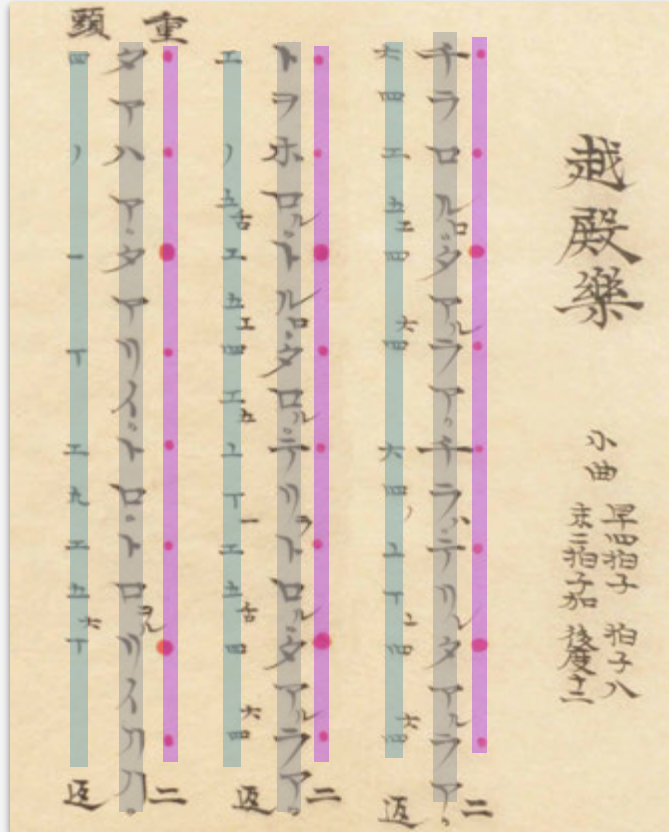 越殿樂
小曲
早四拍子 拍子八
末二拍子加 後度十二
チラロルロタアルラアチラハテリレタアルラア 二
六四工五工四六四六四ノ丄丅丄四六四 返
トヲホロルトルロタロルテリヲトロルタアルラア 二
工ノ五舌工五工四工五丄丅一工五舌四六四 返
重頭
タアハアタアリイトロトロヲルリイ 二
四ノ一丅工九工五六丅 返